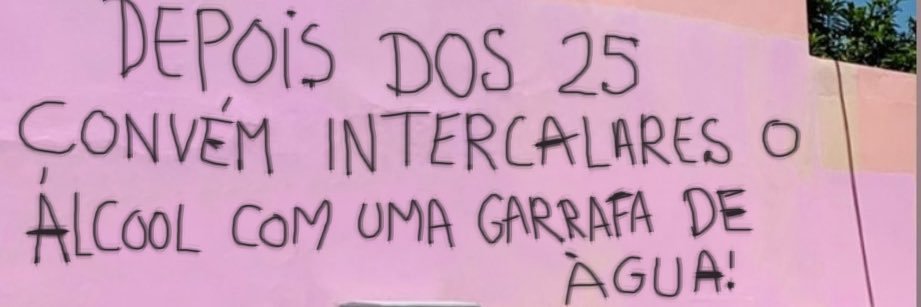 DEPOIS DOS 25
CONVÉM INTERCALARES O
ÁLCOOL COM UMA GARRAFA DE
ÀGUA!